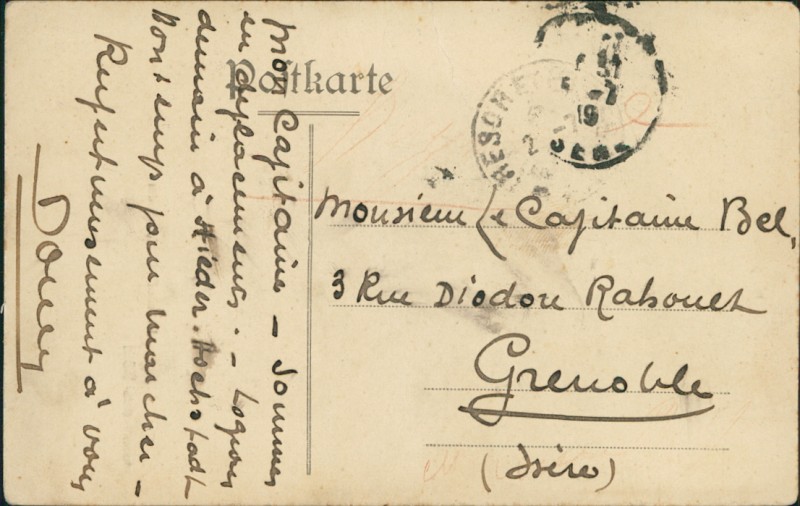 Postkarte
Mon Capitaine – Sommes
en déplacements. – Logeons
demain à Nieder. Hochstadt
Bon temps pour marcher –
Respectueusement à vous
Doucey
TRESOR ET
19
Monsieur le Capitaine Bel,
3 Rue Diodore Rahoult
Grenoble
(Isère)